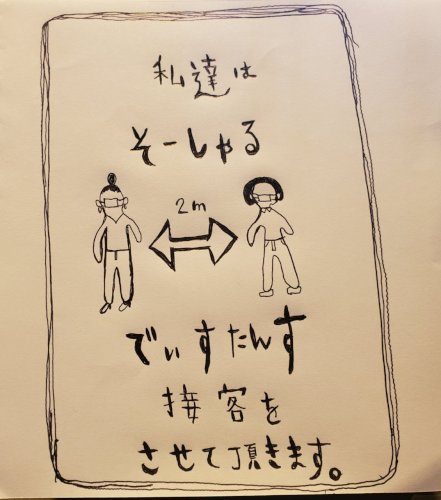 私達は
そーしゃる
2m
でぃすたんす
接客を
させて頂きます。